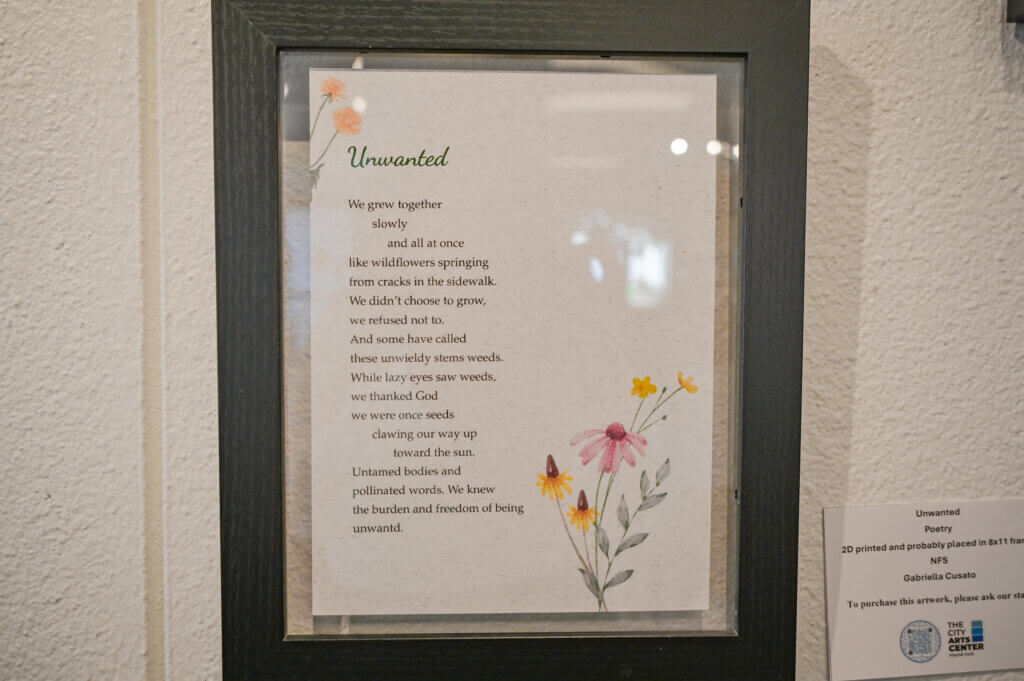 Unwanted
We grew together
slowly
and all at once
like wildflowers springing
from cracks in the sidewalk.
We didn't choose to grow,
we refused not to.
And some have called
these unwieldy stems weeds.
While lazy eyes saw weeds,
we thanked God
we were once seeds
clawing our way up
toward the sun.
Untamed bodies and
pollinated words. We knew
the burden and freedom of being
unwantd.
Unwanted
Poetry
2D printed and probably placed in 8x11
NFS
Gabriella Cusato
To purchase this artwork, please ask our
THE
CITY
ARTS
CENTER
round rock